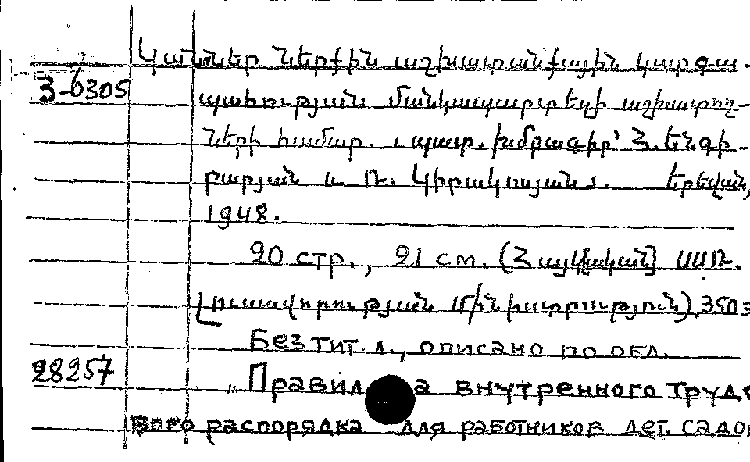 Կանոններ ներքին աշխատանքային կարգա-
3-6305
պահության մանկապարտեզի աշխատող-
ների համար. պատ. խմբագիր՝ Հ. Ենգի-
բարյան և Ռ. Կիրակոսյան. Երևան,
1948.
20 стр., 21 см. (Հայկական ՍՍՌ.
Լուսավորության Մինիստրություն), 350
Без тит. л., описано по обл.
28257
Правила внутреннего трудо
вого распорядка для работников дет. садо